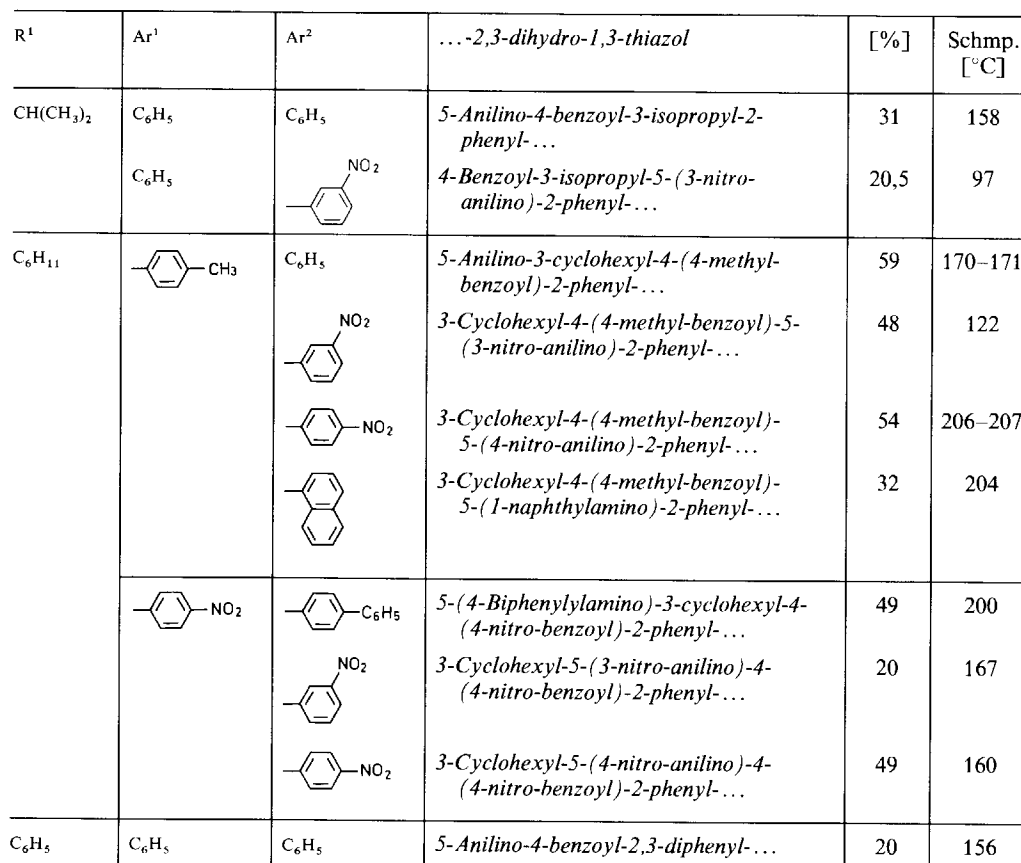 R¹ Ar¹ Ar² ...-2,3-dihydro-1,3-thiazol [%] Schmp. [°C]
CH(CH₃)₂ C₆H₅ C₆H₅ 5-Anilino-4-benzoyl-3-isopropyl-2- 31 158
phenyl-...
C₆H₅ NO₂ 4-Benzoyl-3-isopropyl-5-(3-nitro- 20,5 97
anilino)-2-phenyl-...
C₆H₁₁ CH₃ C₆H₅ 5-Anilino-3-cyclohexyl-4-(4-methyl- 59 170–171
benzoyl)-2-phenyl-...
NO₂ 3-Cyclohexyl-4-(4-methyl-benzoyl)-5- 48 122
(3-nitro-anilino)-2-phenyl-...
NO₂ 3-Cyclohexyl-4-(4-methyl-benzoyl)- 54 206–207
5-(4-nitro-anilino)-2-phenyl-...
3-Cyclohexyl-4-(4-methyl-benzoyl)- 32 204
5-(1-naphthylamino)-2-phenyl-...
NO₂ C₆H₅ 5-(4-Biphenylylamino)-3-cyclohexyl-4- 49 200
(4-nitro-benzoyl)-2-phenyl-...
NO₂ 3-Cyclohexyl-5-(3-nitro-anilino)-4- 20 167
(4-nitro-benzoyl)-2-phenyl-...
NO₂ 3-Cyclohexyl-5-(4-nitro-anilino)-4- 49 160
(4-nitro-benzoyl)-2-phenyl-...
C₆H₅ C₆H₅ C₆H₅ 5-Anilino-4-benzoyl-2,3-diphenyl-... 20 156